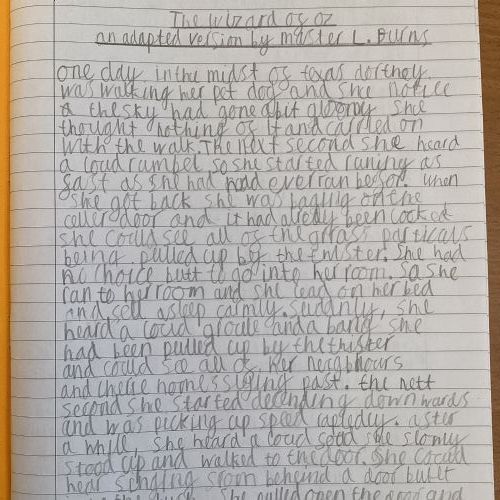 The Wizard of oz
an adapted version by master L. Burns
one day in the midst of texas dorthey
was walking her pet dog and she notice
d the sky had gone abit gloomy she
thought nothing of it and carried on
with the walk. The next second she heard
a loud rumbel so she started runing as
fast as she had ever ran befor. when
she got back she was on the
celler door and it had alredy been locked
she could see all of the grass particals
being pulled up by the twister. She had
no choice butt to go into her room. So she
ran to her room and she lead on her bed
and fell asleep calmly. suddnly, she
heard a loud and a bang she
had been pulled up by the
and could see all of her neighbours
and homes past. the nett
second she started decending downwards
and was picking up speed rapledly. after
a while, she heard a loud she slomly
stood up and walked to the door. She could
hear from beheind a door built
the She pulled open the door and